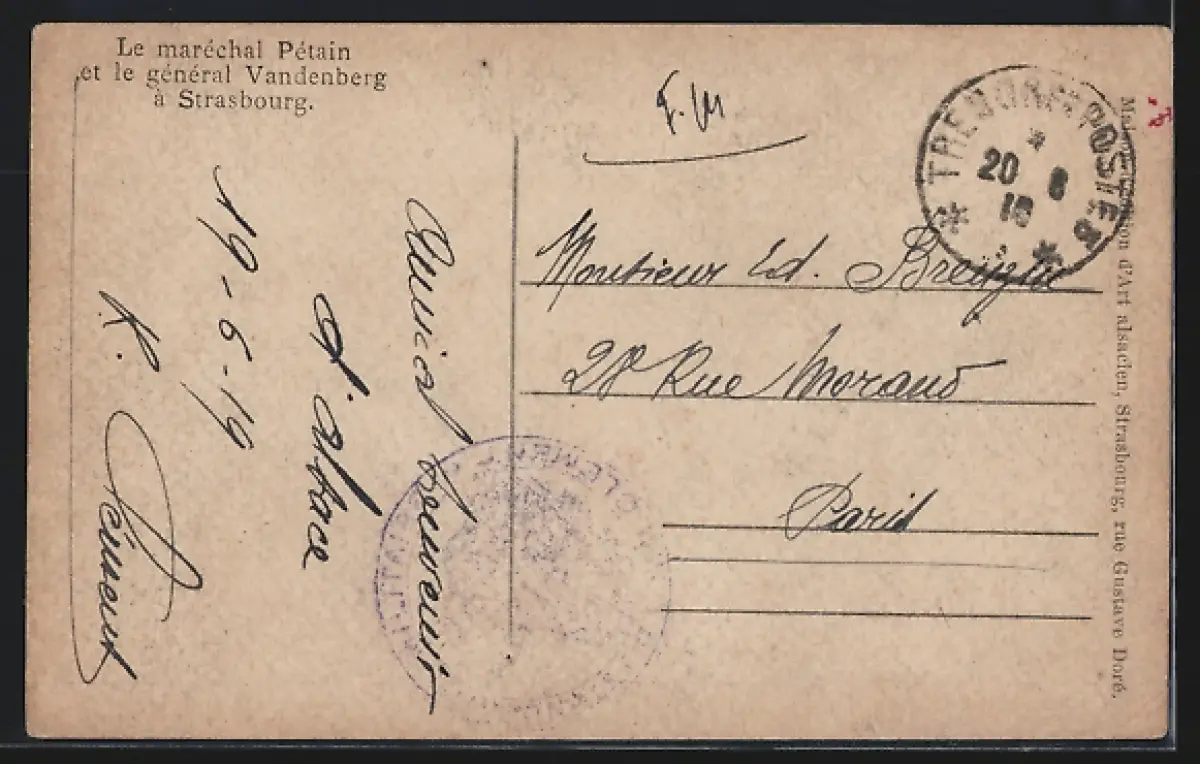 Le maréchal Pétain
et le général Vandenberg
à Strasbourg.
F. M
TRESOR ET POSTES
20 6
Monsieur Ed.
28 Rue Morand
Paris
Amical Souvenir
d'alsace
19-6-19
R.
d'Art alsacien, Strasbourg, rue Gustave Doré.